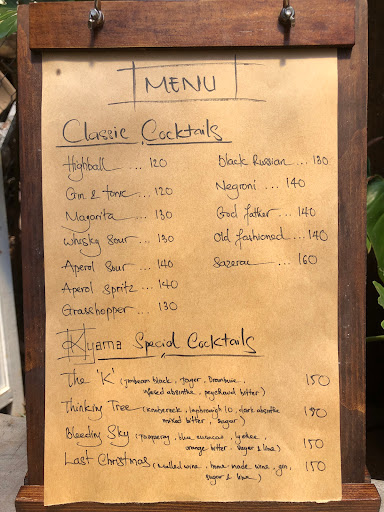 MENU
Classic Cocktails
Highball ... 120
Gin & tonic ... 120
Magarita ... 130
Whisky Sour ... 130
Aperol Sour ... 140
Aperol Spritz ... 140
Grasshopper ... 130
Black Russian ... 130
Negroni ... 140
God father ... 140
Old fashioned ... 140
Sazerac ... 160
Kyama Special Cocktails
The 'K' (jimbeam black, Jager, Drambuie, 150
absinthe, peychaud bitter)
Thinking Tree ( 10, dark absinthe 190
mixed bitter, sugar)
Bleeding Sky ( blue curacao, lychee 150
orange bitter, sugar & lime)
Last Christmas (mulled wine, home made wine, gin, 150
sugar & lime)